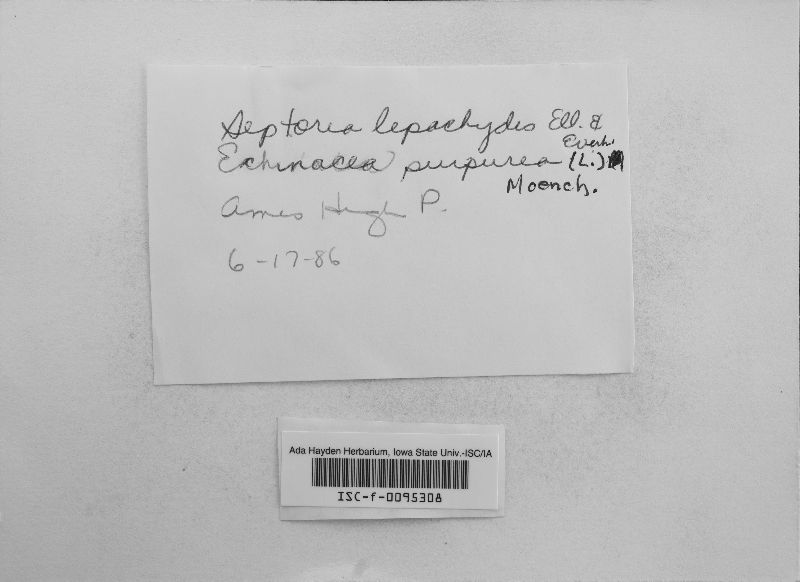 Septoria lepachydis Ell. &
Everh.
Echinacea purpurea (L.)
Moench.
Ames High P.
6-17-86
Ada Hayden Herbarium, Iowa State Univ.-ISC/IA
ISC-f-0095308